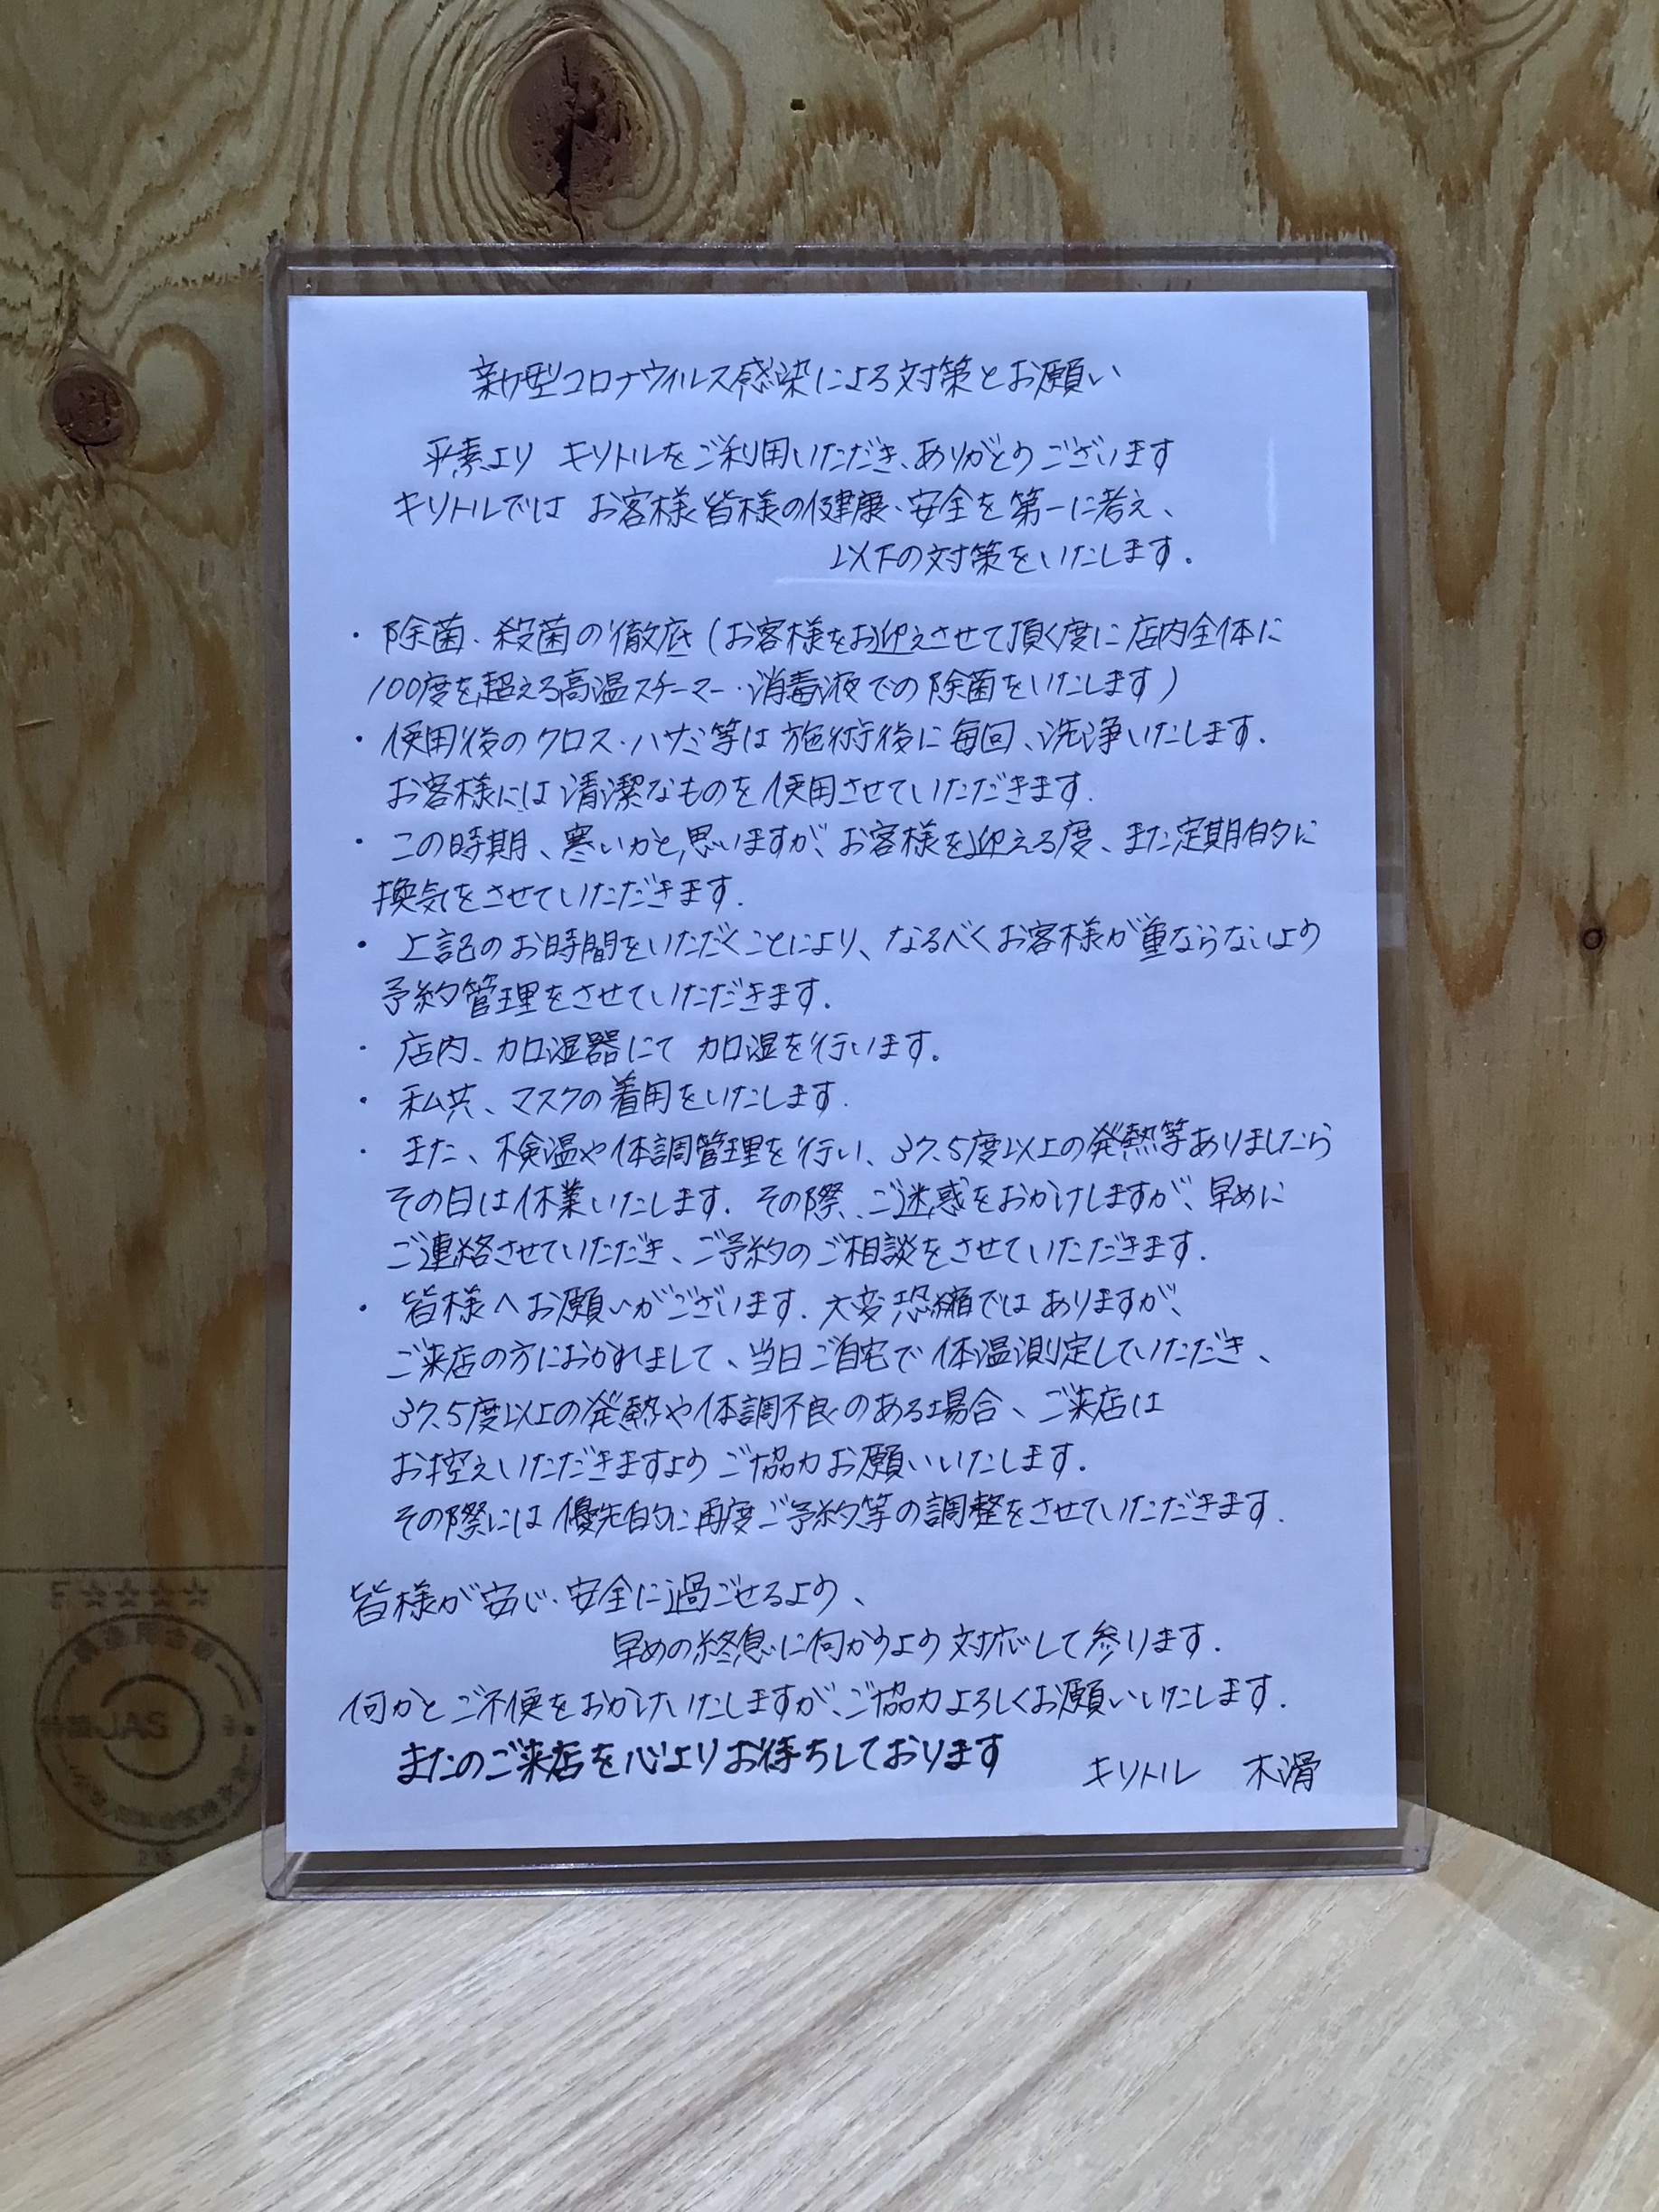 新型コロナウィルス感染による対策とお願い
平素より キリトルをご利用いただき、ありがとうございます
キリトルでは お客様皆様の健康・安全を第一に考え、
以下の対策をいたします.
・除菌・殺菌の徹底(お客様をお迎えさせて頂く度に店内全体に
100度を超える高温スチーマー・消毒液での除菌をいたします)
・使用後のクロス・ハサミ等は施術後に毎回、洗浄いたします.
お客様には清潔なものを使用させていただきます.
・この時期、寒いかと思いますが、お客様を迎える度、また定期的に
換気をさせていただきます.
・上記のお時間をいただくことにより、なるべくお客様が重ならないよう
予約管理をさせていただきます.
・店内、加湿器にて 加湿を行います.
・私共、マスクの着用をいたします.
・また、検温や体調管理を行い、37.5度以上の発熱等ありましたら
その日は休業いたします. その際、ご迷惑をおかけしますが、早めに
ご連絡させていただき、ご予約のご相談をさせていただきます.
・皆様へお願いがございます. 大変恐縮ではありますが、
ご来店の方におかれまして、当日ご自宅で体温測定していただき、
37.5度以上の発熱や体調不良のある場合、ご来店は
お控えいただきますようご協力お願いいたします.
その際には優先的に再度ご予約等の調整をさせていただきます.
皆様が安心・安全に過ごせるよう、
早めの終息に向かうよう対応して参ります.
何かとご不便をおかけいたしますが、ご協力よろしくお願いいたします.
またのご来店を心よりお待ちしております
キリトル 木滑
F☆☆☆☆
JAS